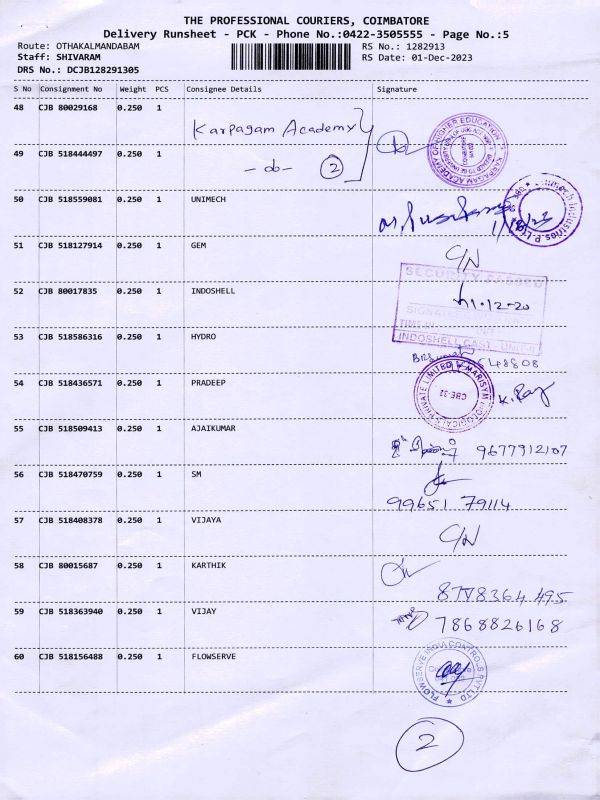 THE PROFESSIONAL COURIERS, COIMBATORE
Delivery Runsheet - PCK - Phone No.:0422-3505555 - Page No.:5
Route: OTHAKALMANDABAM RS No.: 1282913
Staff: SHIVARAM RS Date: 01-Dec-2023
DRS No.: DCJB128291305
S No Consignment No Weight PCS Consignee Details Signature
48 CJB 80029168 0.250 1
Karpagam Academy
49 CJB 518444497 0.250 1
- do - 2
50 CJB 518559081 0.250 1 UNIMECH
51 CJB 518127914 0.250 1 GEM C/N
SECURITY PASSED
52 CJB 80017835 0.250 1 INDOSHELL
INDOSHELL CAST
53 CJB 518586316 0.250 1 HYDRO
54 CJB 518436571 0.250 1 PRADEEP
CBE-32
K. Raj
55 CJB 518509413 0.250 1 AJAIKUMAR
9677912107
56 CJB 518470759 0.250 1 SM
99651 79114
57 CJB 518408378 0.250 1 VIJAYA C/N
58 CJB 80015687 0.250 1 KARTHIK
8778364 495
59 CJB 518363940 0.250 1 VIJAY
7868826168
60 CJB 518156488 0.250 1 FLOWSERVE
FLOWSERVE INDIA CONTROLS PVT LTD
2